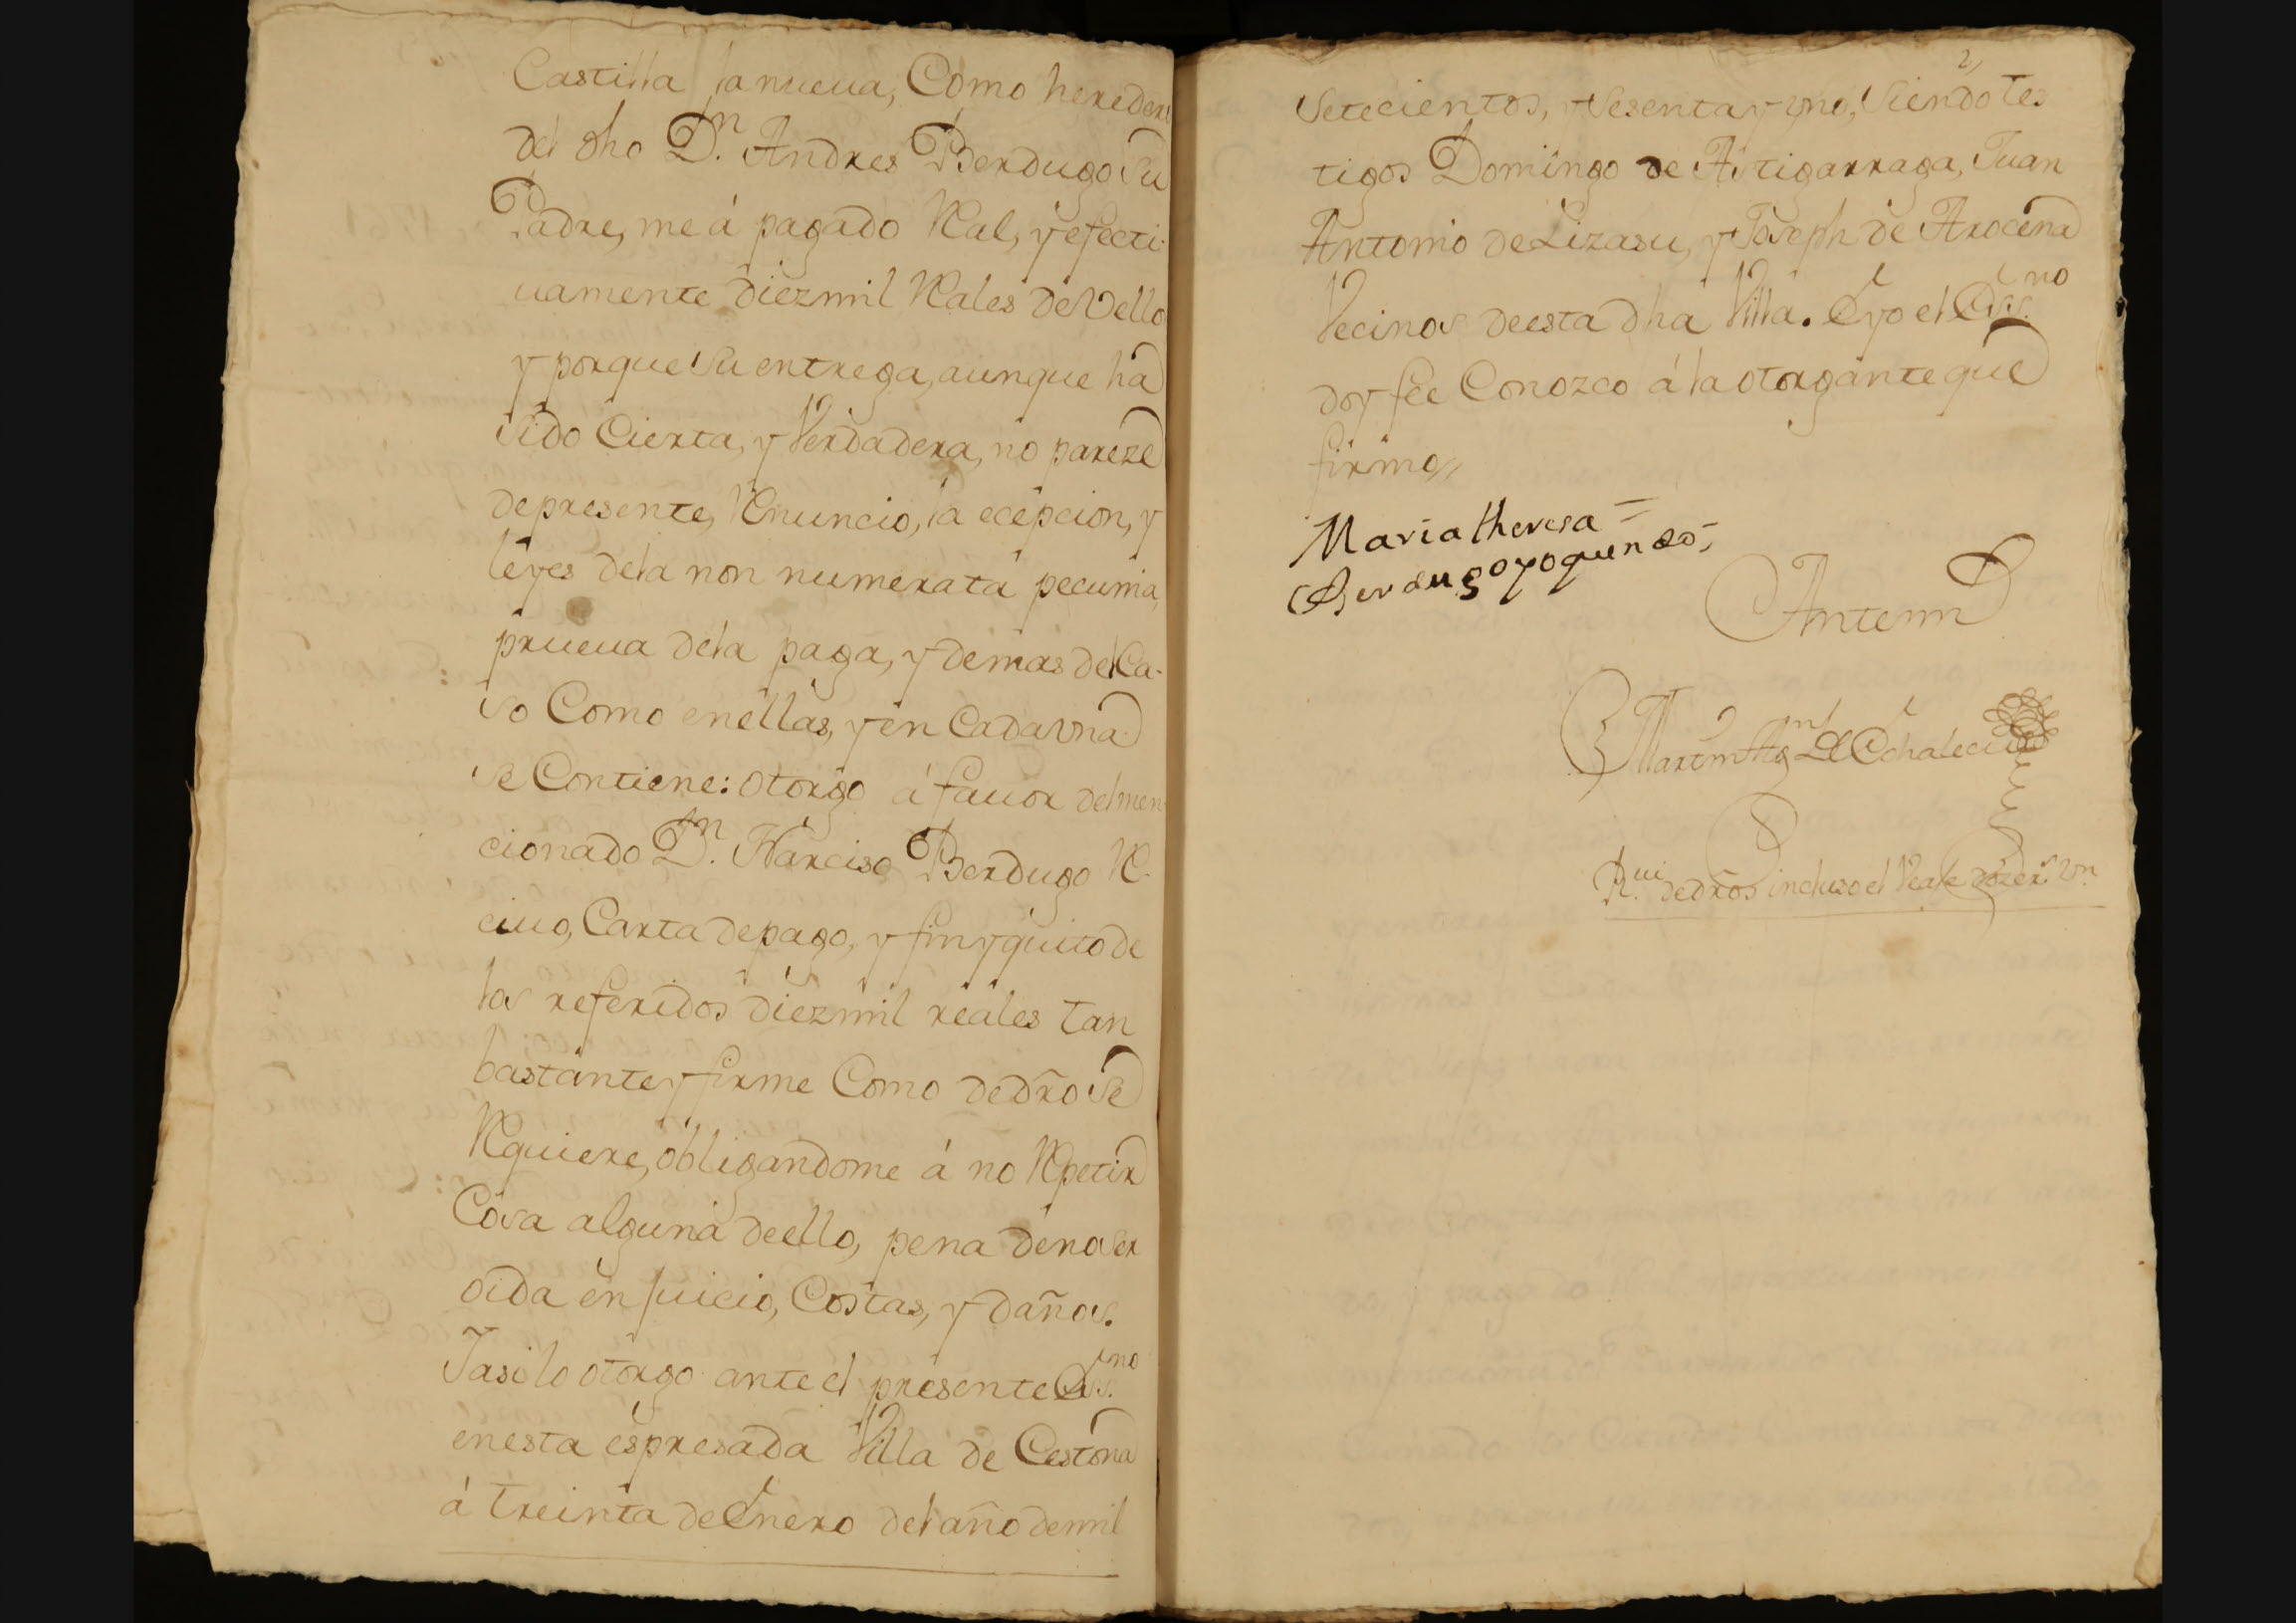 Castilla la nueua, Como heredero
del dho D.n Andres Berdugo su
Padre, me á pagado Real, y efecti-
uamente diezmil Reales de Vello
y porque su entrega, aunque ha
sido Cierta, y Verdadera, no pareze
depresente, Renuncio, la ecepcion, y
leyes dela non numerata pecunia,
prueua dela paga, y demas del Ca-
so Como enellas, y en Cada vna
se Contiene: otorgo á fauor del men
cionado D.n Narciso Berdugo Re-
ciuo, Carta depago, y finyquito de
los referidos diezmil reales tan
bastante y firme Como de dro se
Requiere, obligandome á no Repetir
Cosa alguna deello, pena deno ser
oida en Juicio, Costas, y daños.
Y asi lo otorgo ante el presente Ess.no
enesta espresada Villa de Cestona
á treinta de Enero del año demil
2
Setecientos, y Sesenta y vno, Siendo tes
tigos Domingo de Artigarraga, Juan
Antonio de Lizasu, y Joseph de Arocena
Vecinos deesta dha Villa. E yo el Ess.no
doy fee Conozco á la otorgante que
firmo
Maria theresa =
Berdugo y oquendo
Antemi
Martin Ag.n de Echalecu
R.ui dedros incluso el